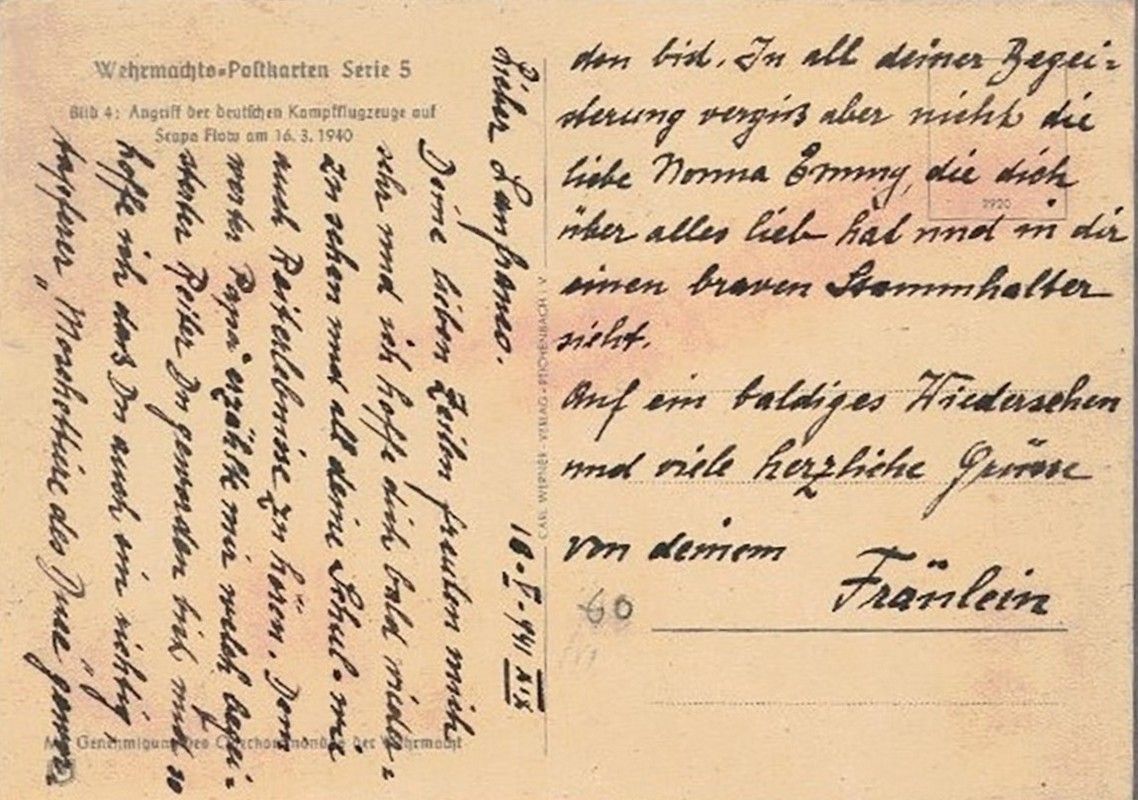 Wehrmachts=Postkarten Serie 5
Bild 4: Angriff der deutschen Kampfflugzeuge auf
Scapa Flow am 16. 3. 1940
941 XIX
Lieber Lanfranco.
Deine lieben Zeilen freuten mich
sehr und ich hoffe dich bald wieder=
zu sehen und all deine Schul- wie
auch Reiterlebnisse zu hören. Dein
werter "Papa" erzählte mir welch begei=
sterter Reiter Du geworden bist und so
hoffe ich daß Du auch ein richtig,
tapferer "Moschettiere des Duce" gewor=
den bist. In all deiner Begei=
sterung vergiß aber nicht die
liebe Nonna Emmy, die dich
über alles lieb hat und in dir
einen braven Stammhalter
sieht.
Auf ein baldiges Wiedersehen
und viele herzliche Grüsse
von deinem
Fräulein
60
2920
CARL WERNER - VERLAG - REICHENBACH I. V.
Mit Genehmigung des Oberkommandos der Wehrmacht